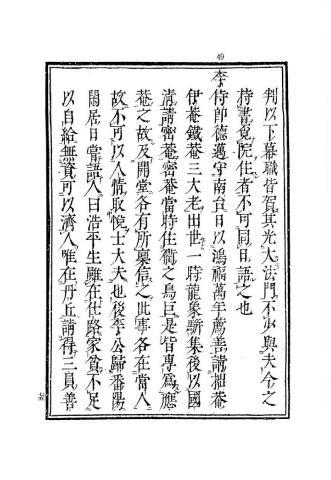 49
判以下幕職皆賀其光大法門不少與夫今之
持書免院住者不可同日語之也
李侍郎德邁守南台日以鴻福萬年薦善請拙菴
伊菴鐵菴三大老出世一時龍象駢集後以國
清請密菴密菴當時住衢之烏巨是皆專為應
菴之故及開堂各有所稟信之此事各在當人
故不可以人情取悅士大夫也後李公歸番陽
閑居日嘗語人曰浩平生雖在仕路家貧不足
以自給無資可以濟人唯在丹丘請得三員善